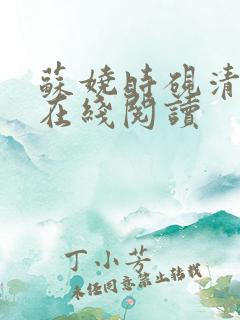 蘇嬈時硯清
在綫閱讀
丁小芳
未經同意禁止轉載